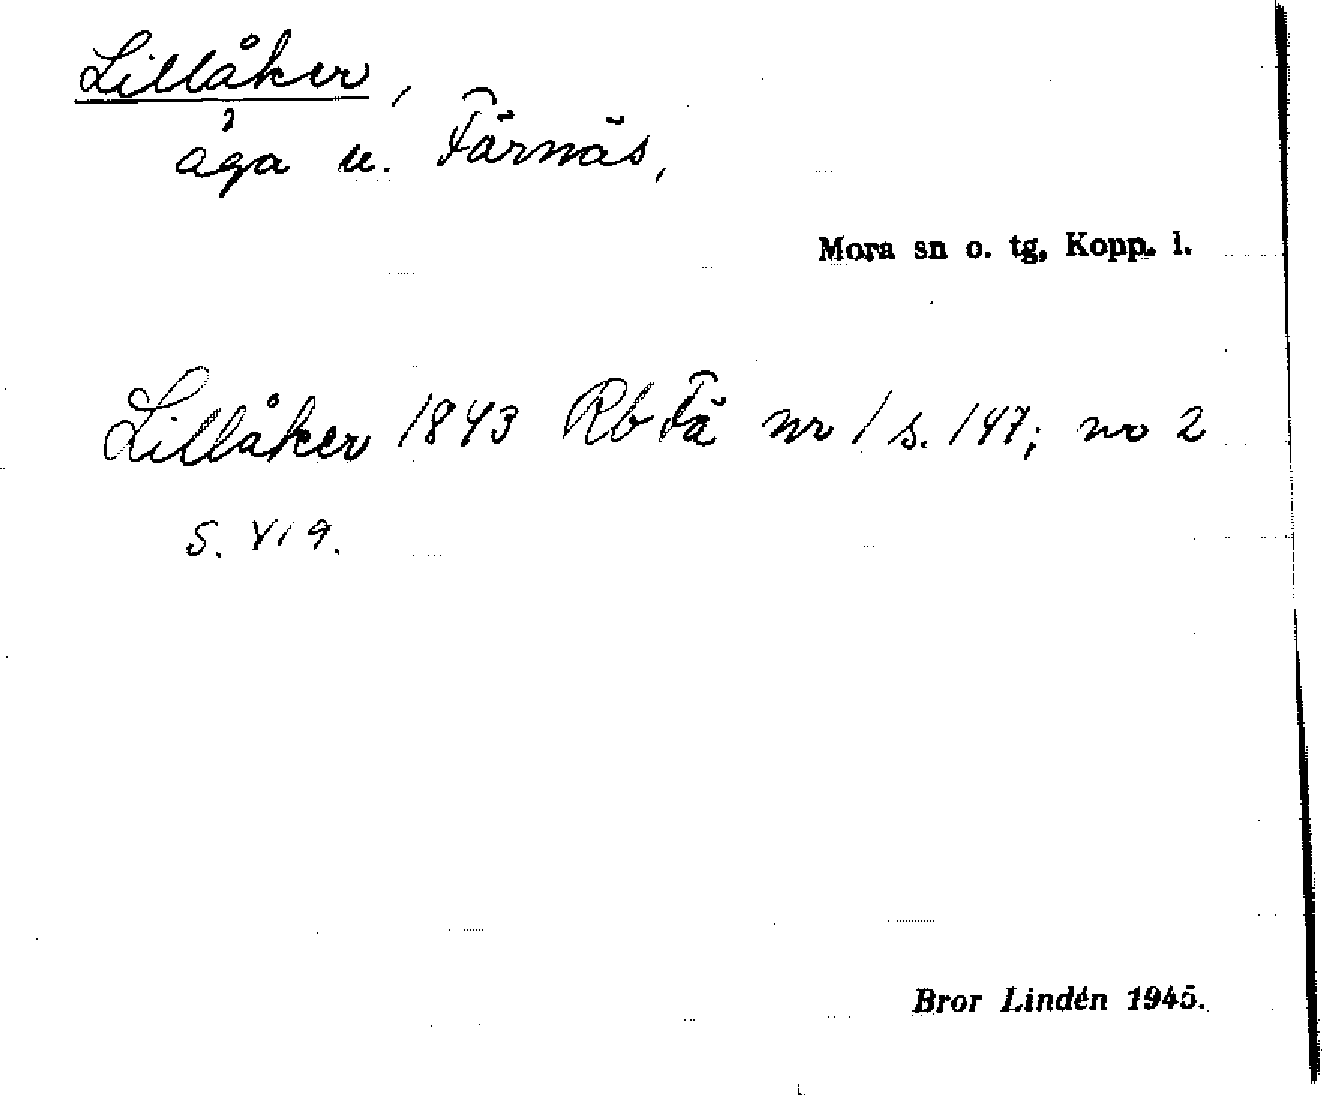 Lillåker,
åga u. Färnäs,
Mora sn o. tg, Kopp. l.
Lillåker 1843 Rb Fä nr 1 s. 147; nr 2
s. 419.
Bror Lindén 1945.